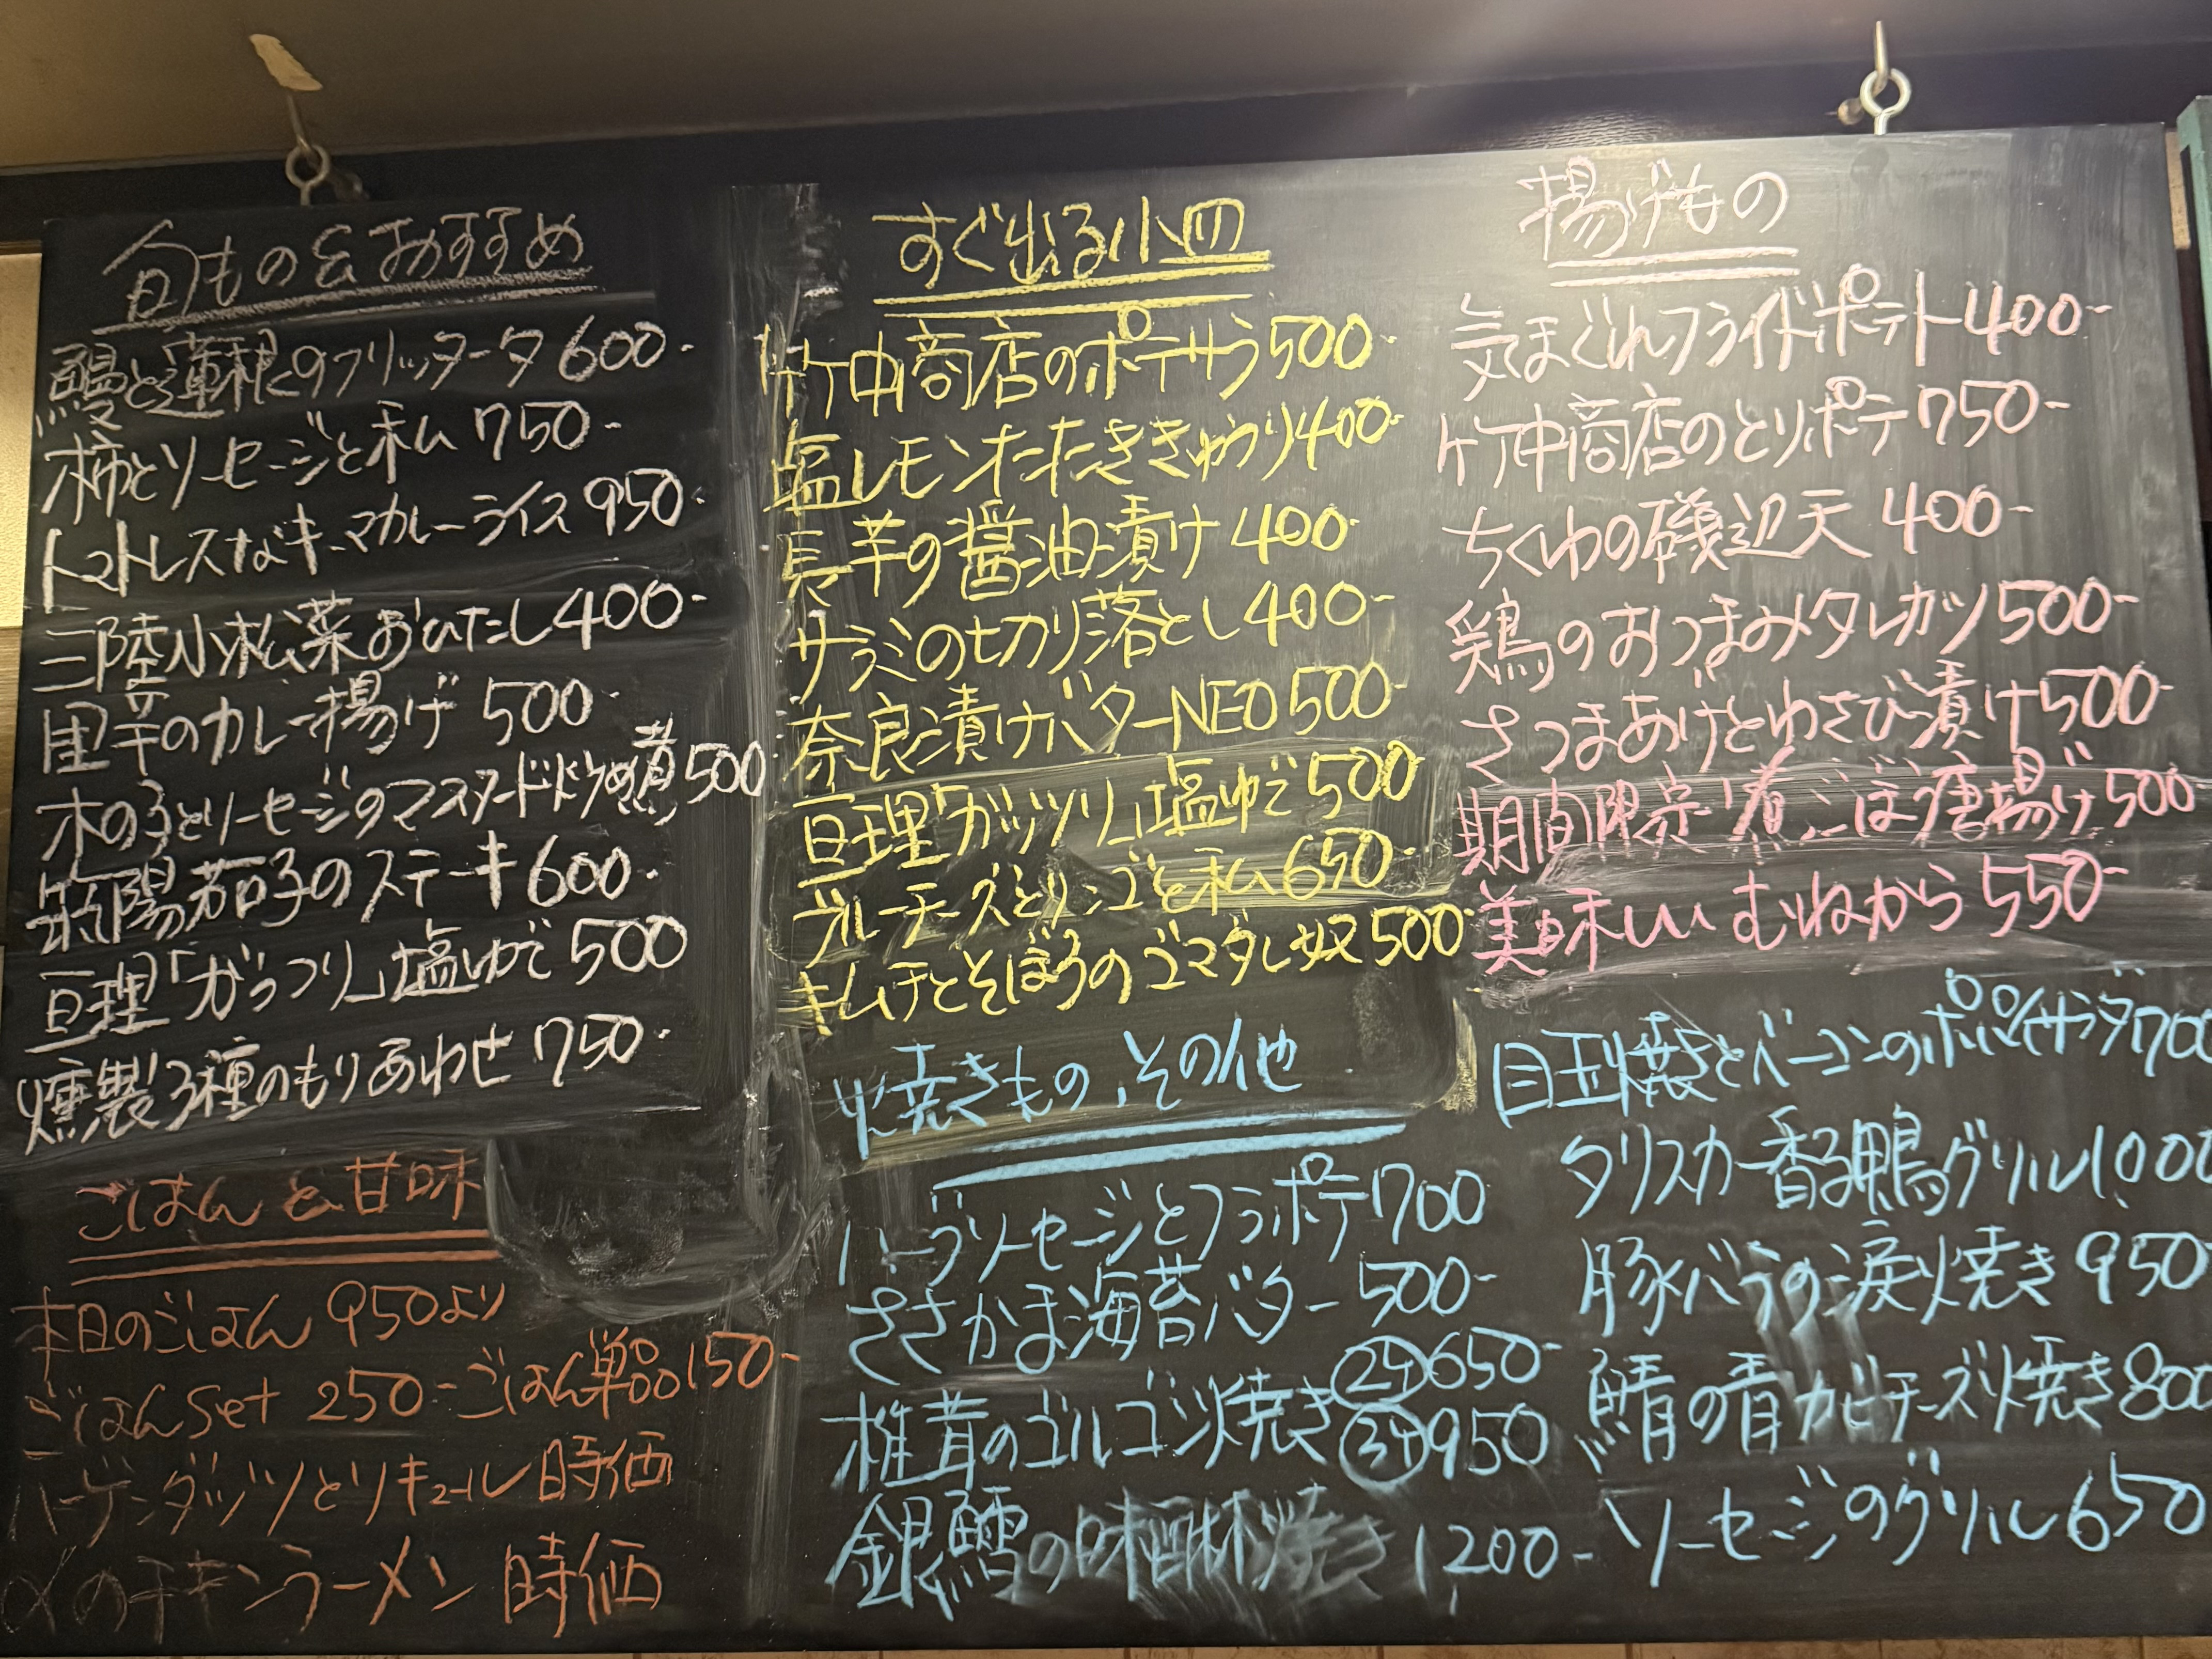 旬もの&おすすめ
鰻と蓮根のフリッタータ 600-
柿とソーセージと私 750-
トマトレスなキーマカレーライス 950-
三陸小松菜おひたし 400-
里芋のカレー揚げ 500-
木の子とソーセージのマスタード炒め煮 500-
筑陽茄子のステーキ 600-
亘理「がっつり」塩ゆで 500
燻製3種のもりあわせ 750-
ごはんと甘味
本日のごはん 950より
ごはんset 250-ごはん単品150-
ハーゲンダッツとリキュール 時価
αのチキンラーメン 時価
すぐ出る小皿
竹中商店のポテサラ500-
塩レモンたたききゅうり400-
長芋の醤油漬け 400-
サラミの切り落とし 400-
奈良漬けバターNEO 500-
亘理「ガッツリ」塩ゆで 500
ブルーチーズとリンゴと私 650-
キムチとそぼろのゴマダレ奴 500-
焼きもの、その他
ハーブソーセージとフラポテ700
ささかま海苔バター 500-
椎茸のゴルゴンゾ焼き ②ケ 650-
③ケ 950
銀鱈の味醂焼き 1200-
揚げもの
気まぐれフライドポテト400-
竹中商店のとりポテ 750-
ちくわの磯辺天 400-
鶏のおつまみタレカツ 500-
さつまあげとわさび漬け500-
期間限定!煮ごぼう唐揚げ500-
美味しいむねから 550-
目玉焼きとベーコンのポパイサラダ700
タリスカー香る鴨グリル1000
豚バラの涙焼き 950
鯖の青カビチーズ焼き 800
ソーセージのグリル 650